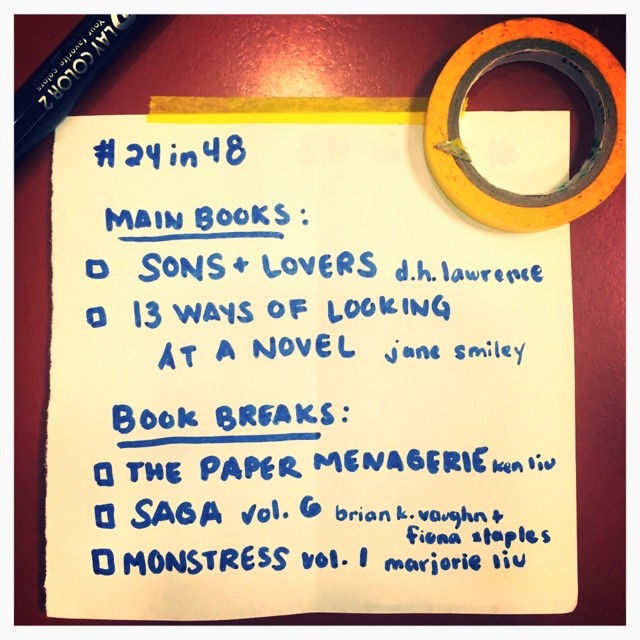 PLAY COLOR 2
Your favorite colors
#24in48
MAIN BOOKS:
SONS + LOVERS d.h. lawrence
13 WAYS OF LOOKING
AT A NOVEL jane smiley
BOOK BREAKS:
THE PAPER MENAGERIE ken liu
SAGA vol. 6 brian k. vaughn +
fiona staples
MONSTRESS vol. 1 marjorie liu